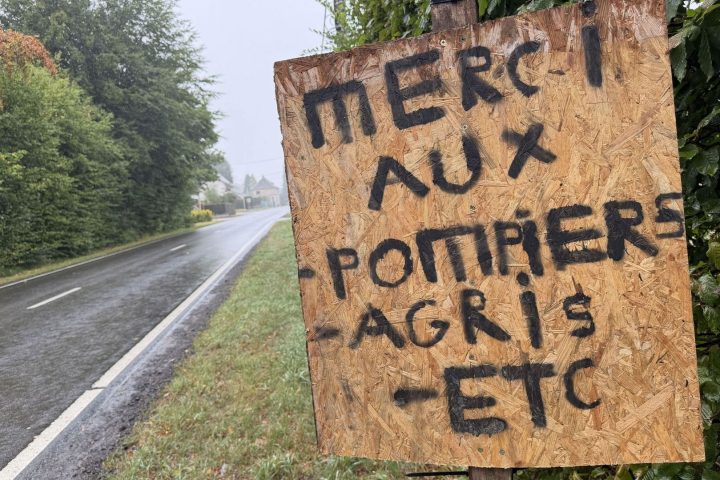 MERCi
AUX
- POMPiERS
- AGRiS
- ETC